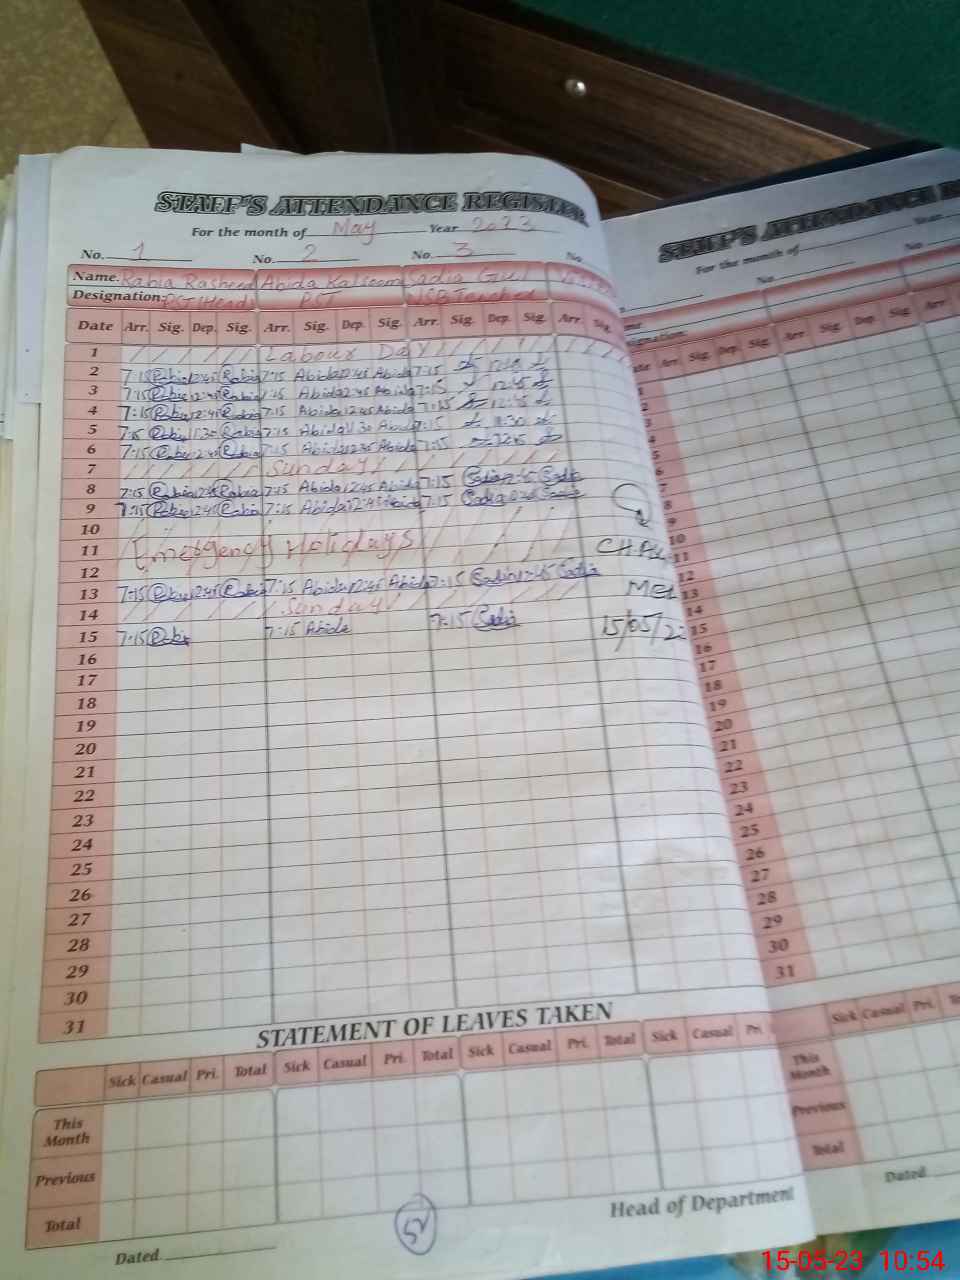 STAFF'S ATTENDANCE REGISTER
For the month of May Year 2023
No. 1 No. 2 No. 3 No.
Name. Rabia Rasheed Abida Kalsoom Sadia Gul
Designation: PST/Head PST
Date Arr. Sig. Dep. Sig. Arr. Sig. Dep. Sig. Arr. Sig. Dep. Sig. Arr. Sig.
1 Labour Day
2 7:15 Rabia 12:45 Rabia 7:15 Abida 12:45 Abida 7:15
3 7:15 Rabia 12:45 Rabia 7:15 Abida 12:45 Abida 7:15 12:45
4 7:15 Rabia 12:45 Rabia 7:15 Abida 12:45 Abida 7:15 12:45
5 7:15 Rabia 11:30 Rabia 7:15 Abida 11:30 Abida 7:15 11:30
6 7:15 Rabia 12:45 Rabia 7:15 Abida Abida 7:15
7 Sunday
8 7:15 Rabia 12:45 Rabia 7:15 Abida 12:45 Abida 7:15 Sadia 12:45 Sadia
9 7:15 Rabia 12:45 Rabia 7:15 Abida 12:45 Abida 7:15 Sadia 12:45 Sadia
10
11 Emergency Holidays
12
13 7:15 Rabia 12:45 Rabia 7:15 Abida 12:45 Abida 7:15 Sadia 12:45 Sadia
14 Sunday
15 7:15 Rabia 7:15 Abida 7:15 Sadia 15/05/2
16
17
18
19
20
21
22
23
24
25
26
27
28
29
30
31
STATEMENT OF LEAVES TAKEN
Sick Casual Pri. Total Sick Casual Pri. Total Sick Casual Pri. Total Sick Casual Pri
This Month
Previous
Total
Dated
Head of Department
STAFF'S ATTENDANCE
For the month of Year
No. No.
Arr. Sig. Dep. Sig. Arr. Sig. Dep. Sig.
1
2
3
4
5
6
7
8
9
10
11
12
13
14
15
16
17
18
19
20
21
22
23
24
25
26
27
28
29
30
31
Sick Casual Pri.
This Month
Previous
Total
Dated
15-05-23 10:54